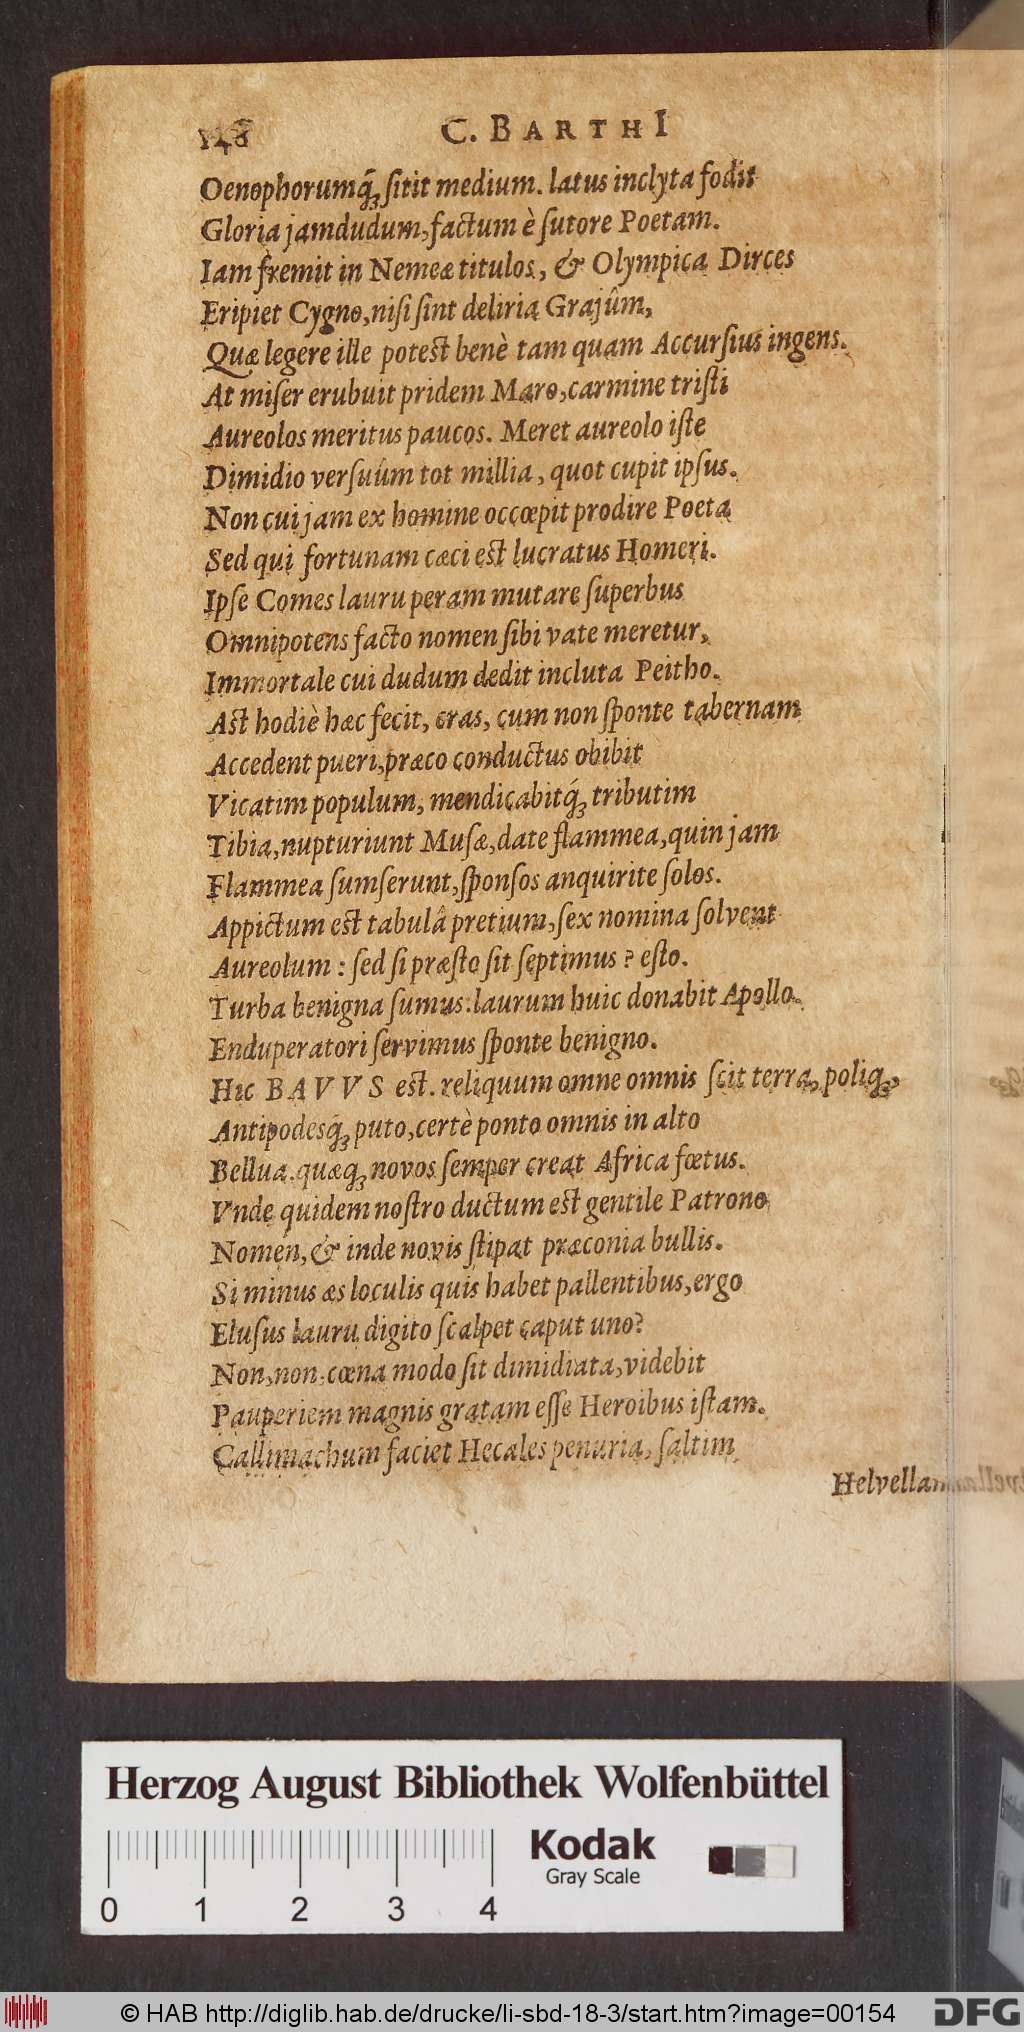 148 C. BARTHI
Oenophorumq́ꝫ ſitit medium. latus inclyta fodit
Gloria jamdudum, factum è ſutore Poetam.
Iam fremit in Nemeæ titulos, & Olympica Dirces
Eripiet Cygno, niſi ſint deliria Grajûm,
Quæ legere ille potest benè tam quam Accurſius ingens.
At miſer erubuit pridem Maro, carmine triſti
Aureolos meritus paucos. Meret aureolo iſte
Dimidio verſuûm tot millia, quot cupit ipſus.
Non cui jam ex homine occœpit prodire Poeta
Sed qui fortunam cæci est lucratus Homeri.
Ipſe Comes lauru peram mutare ſuperbus
Omnipotens facto nomen ſibi vate meretur,
Immortale cui dudum dedit incluta Peitho.
Ast hodiè hæc fecit, cras, cum non ſponte tabernam
Accedent pueri, præco conductus obibit
Vicatim populum, mendicabitq́ꝫ tributim
Tibia, nupturiunt Muſæ, date flammea, quin jam
Flammea ſumſerunt, ſponſos anquirite ſolos.
Appictum est tabulâ pretium, ſex nomina ſolvent
Aureolum: ſed ſi præſto ſit ſeptimus? eſto.
Turba benigna ſumus: laurum huic donabit Apollo.
Enduperatori ſervimus ſponte benigno.
HIC BAVVS est. reliquum omne omnis ſcit terra, poliqꝫ
Antipodesq́ꝫ puto, certè ponto omnis in alto
Bellua. quæqꝫ novos ſemper creat Africa fœtus.
Vnde quidem noſtro ductum est gentile Patrono
Nomen, & inde novis ſtipat præconia bullis.
Si minus æs loculis quis habet pallentibus, ergo
Eluſus lauru digito ſcalpet caput uno?
Non, non, cœna modo ſit dimidiata, videbit
Pauperiem magnis gratam eſſe Heroibus iſtam.
Callimachum faciet Hecales penuria, ſaltim
Helvellam
Herzog August Bibliothek Wolfenbüttel
Kodak
Gray Scale
0 1 2 3 4
© HAB http://diglib.hab.de/drucke/li-sbd-18-3/start.htm?image=00154
DFG